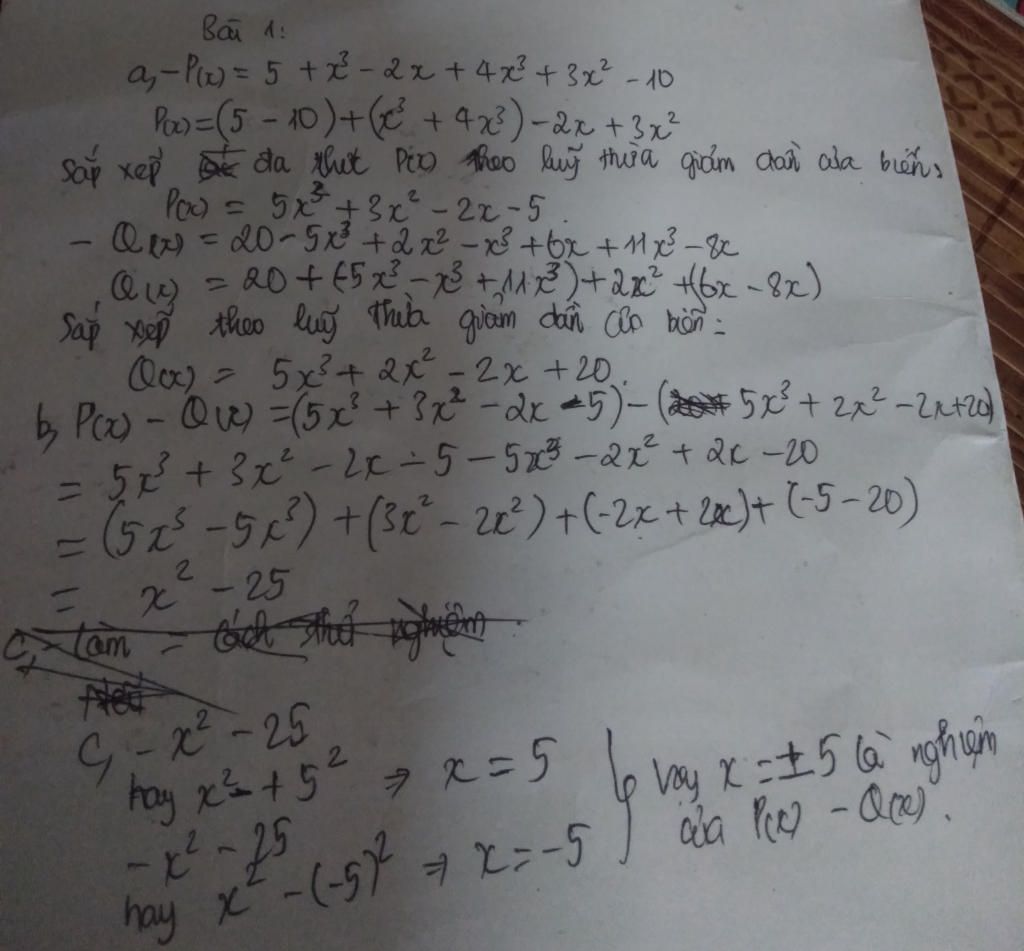 Bài 1:
a, - P(x) = 5 + x³ - 2x + 4x³ + 3x² - 10
P(x) = (5 - 10) + (x³ + 4x³) - 2x + 3x²
Sắp xếp đa thức P(x) theo luỹ thừa giảm dần của biến,
P(x) = 5x³ + 3x² - 2x - 5.
- Q(x) = 20 - 5x³ + 2x² - x³ + 6x + 11x³ - 8x
Q(x) = 20 + (-5x³ - x³ + 11x³) + 2x² + (6x - 8x)
Sắp xếp theo luỹ thừa giảm dần của biến:
Q(x) = 5x³ + 2x² - 2x + 20.
b, P(x) - Q(x) = (5x³ + 3x² - 2x - 5) - (5x³ + 2x² - 2x + 20)
= 5x³ + 3x² - 2x - 5 - 5x³ - 2x² + 2x - 20
= (5x³ - 5x³) + (3x² - 2x²) + (-2x + 2x) + (-5 - 20)
= x² - 25
c, - Làm = cách thử nghiệm
Nếu
c, - x² - 25
hay x² - + 5² ⇒ x = 5
- x² - 25
hay x² - (-5)² ⇒ x = -5
Vậy x = ±5 là nghiệm
của P(x) - Q(x).